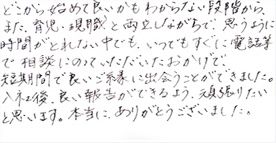 どこから始めて良いかもわからない段階から、
また、育児・現職と両立しながらで、思うように
時間がとれない中でも、いつでもすぐに電話等
で相談にのっていただいたおかげで、
短期間で良いご縁に出会うことができました。
入社後、良い報告ができるよう、頑張りたい
と思います。本当に、ありがとうございました。